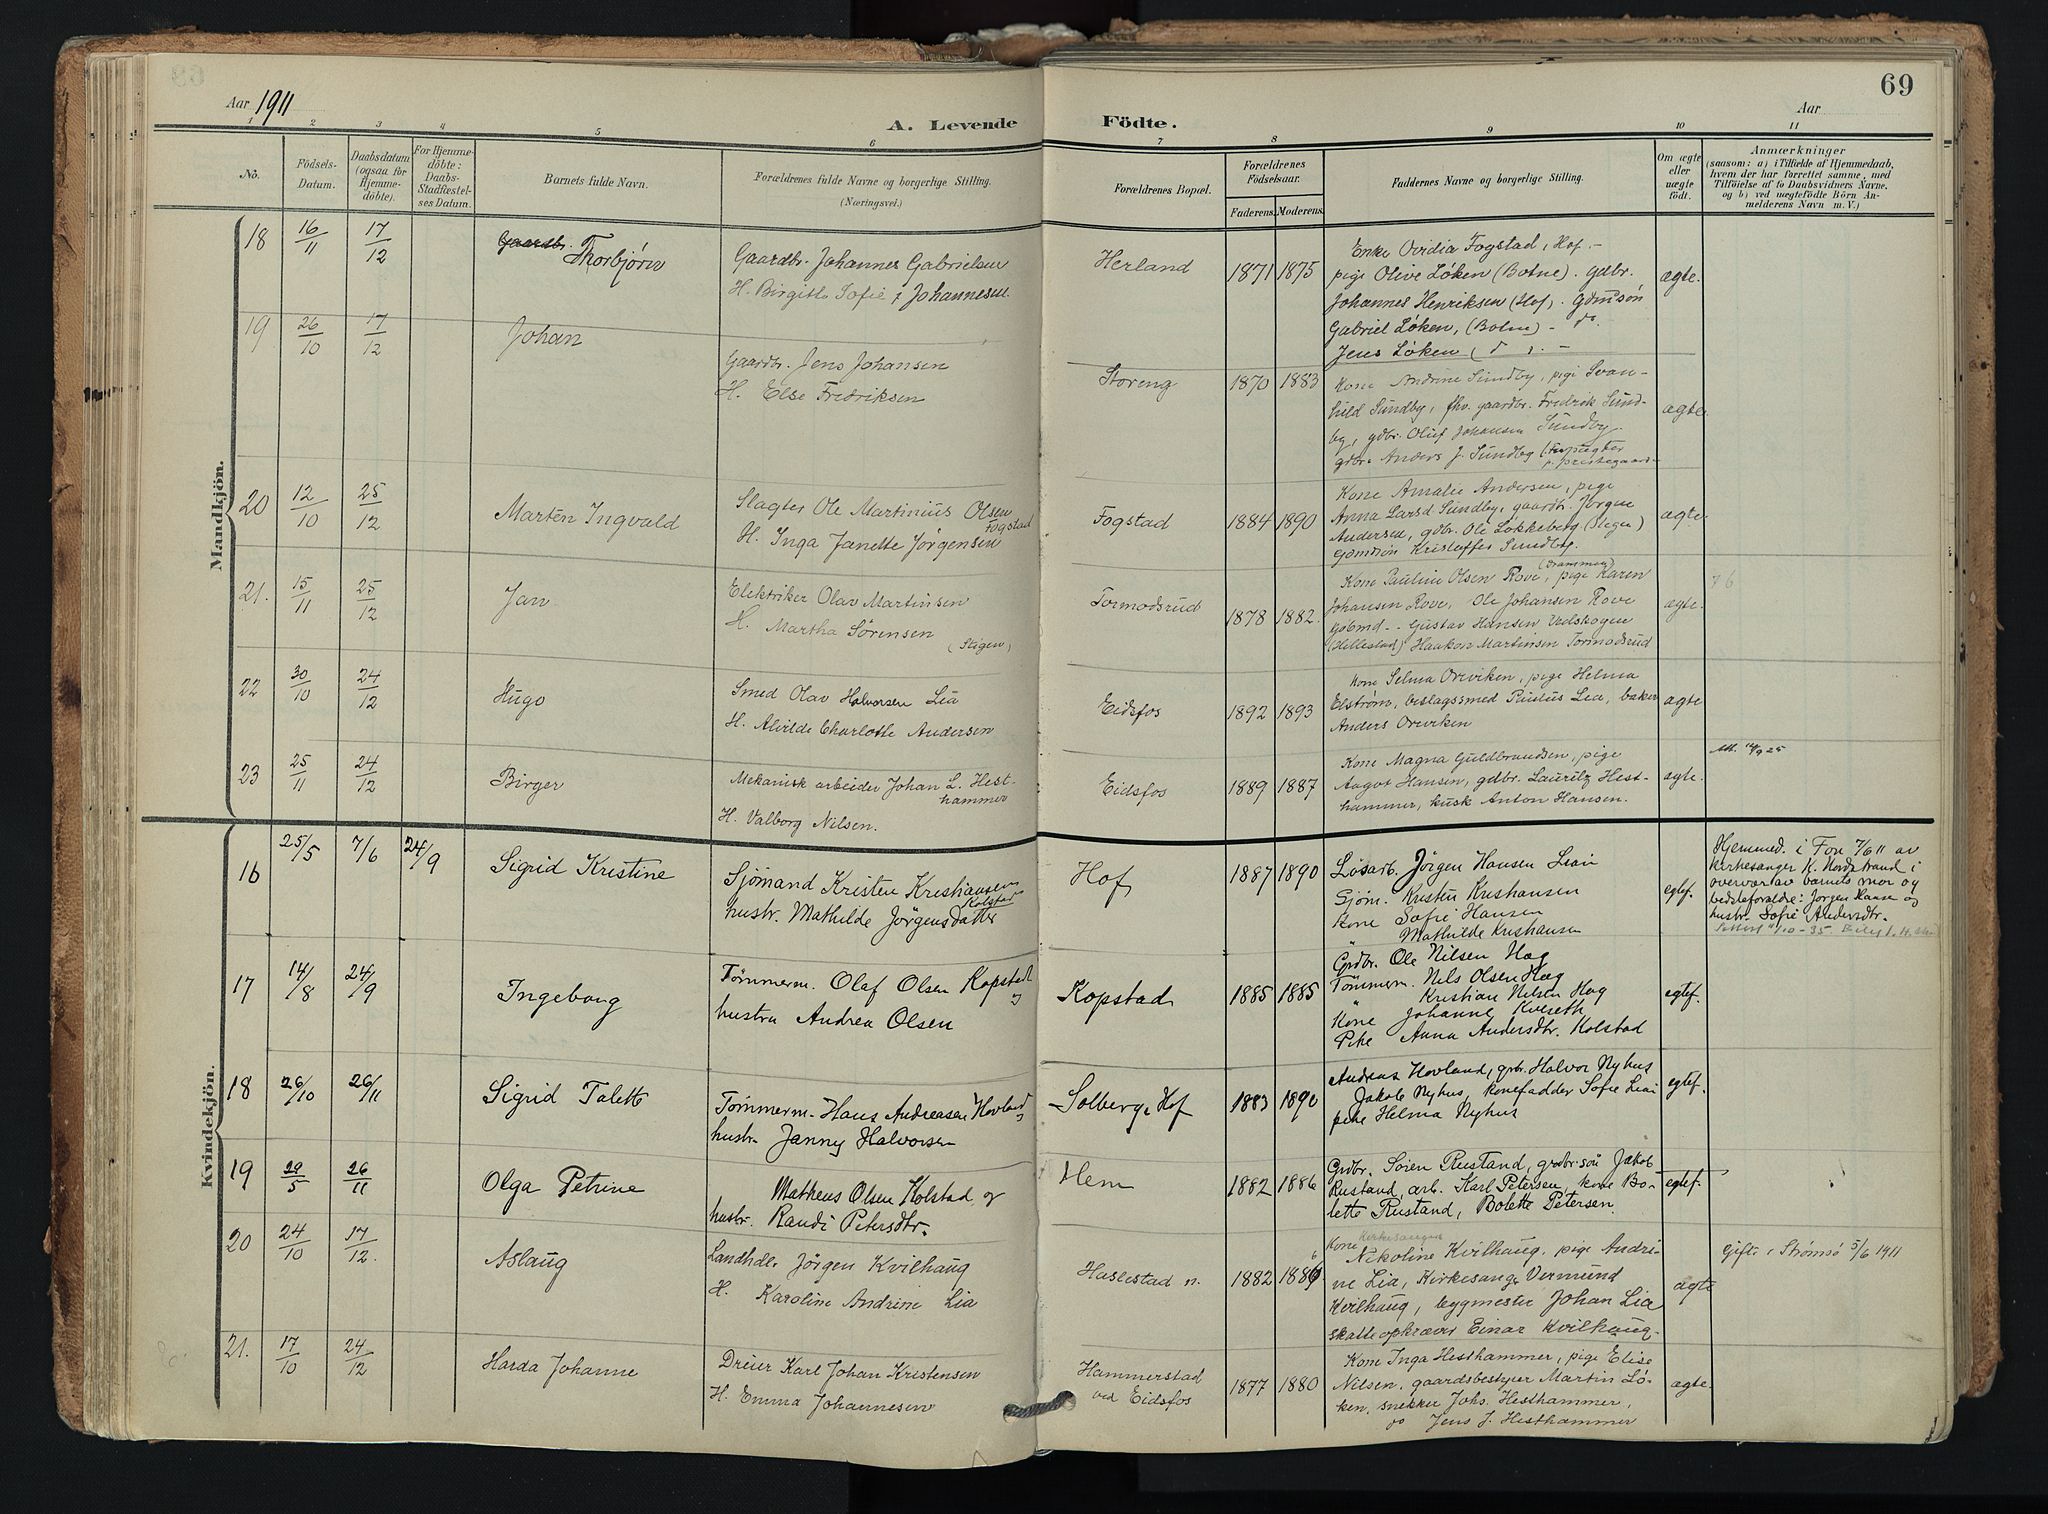 Aar 1911
A. Levende Födte.
69
Aar
1 2 3 4 5 6 7 8 9 10 11
No.
Födsels-Datum.
Daabsdatum (ogsaa for Hjemmedöbte).
For Hjemmedöbte: Daabs-Stadfæstelses Datum.
Barnets fulde Navn.
Forældrenes fulde Navne og borgerlige Stilling.
(Næringsvei.)
Forældrenes Bopæl.
Forældrenes Födselsaar.
Faderens. Moderens.
Faddernes Navne og borgerlige Stilling.
Om ægte eller uægte födt.
Anmærkninger
(saasom: a) i Tilfælde af Hjemmedaab, hvem der har forrettet samme, med Tilföielse af to Daabsvidners Navne, og b) ved uægtefödte Börn Anmelderens Navn m. V.)
Mandkjön.
18 16/11 17/12 Gaardbr. Thorbjörn
Gaardbr. Johannes Gabrielsen
H. Birgitte Sofie Johannesen
Herland 1871 1875
Enke Ovidia Fogstad, Hof.
pige Olive Løken (Botne). gdbr.
Johannes Henriksen (Hof). Gdmsøn
Gabriel Løken, (Botne) - do.
Jens Løken (d
ægte.
19 26/10 17/12 Johan
Gaardbr. Jens Johansen
H. Else Fredriksen
Storeng 1870 1883
Kone Andrine Sundby, pige Svan-
hild Sundby, fhv. gaardbr. Fredrik Sund-
by, gdbr. Oluf Johansen Sundby.
gdbr. Anders J. Sundby
ægte.
20 12/10 25/12 Marten Ingvald
Slagter Ole Martinius Olsen
Fogstad
H. Inga Janette Jørgensen
Fogstad 1884 1890
Kone Amalie Andersen, pige
Anna Larsd Sundby, gaardbr. Jørgen
Andersen, gdbr. Ole Løkkeberg
Kristoffer Sundby.
ægte.
21. 15/11 25/12 Jan
Elektriker Olav Martinsen
H. Martha Sørensen
(Stigen)
Tormodsrud 1878 1882.
(Drammen)
Kone Pauline Olsen Rove, pige Karen
Johansen Rove, Ole Johansen Rove
Gustav Hansen Vedskogen
(Hillestad) Haakon Martinsen Tormodsrud
ægte.
76
22 30/10 24/12 Hugo
Smed Olav Halvorsen Lia
H. Alvilde Charlotte Andersen
Eidsfos 1892 1893
Kone Selma Orviken, pige Helma
Elstrøm, beslagssmed Paulus Lia, baker
Anders Orviken
ægte
23 25/11 24/12 Birger
Mekanisk arbeider Johan L. Hest-
hammer
H. Valborg Nilsen.
Eidsfos 1889 1887
Kone Magna Guldbrandsen, pige
Aagot Hansen, gdbr. Lauritz Hest-
hammer, kusk Anton Hansen.
ægte.
Kvindekjön.
16 25/5 7/6 24/9 Sigrid Kristine
Sjömand Kristen Kristiansen
Kolstad
hustr. Mathilde Jörgensdatter
Hof 1887 1890
Løsarb. Jörgen Hansen Leai
Sjöm. Kristen Kristiansen
Kone Sofie Hansen
Mathilde Kristiansen
egtef.
Hjemmed. i Fon 7/6 11 av
kirkesanger K. Nordstrand i
overvær av barnets mor og
bedsteforældre: Jørgen Hansen og
hustr. Sofie Andersdtr.
17 14/8 24/9 Ingeborg
Tømmerm. Olaf Olsen Kopstad
hustru Andrea Olsen
Kopstad 1885 1885
Grdbr. Ole Nilsen Hag
Tømmerm. Nils Olsen Hag
" Kristian Nilsen Hag
Kone Johanne Kvelseth
Pike Anna Andersdtr. Kolstad
egtef.
18 26/10 26/11 Sigrid Talette
Tømmerm. Hans Andreasen Hovland
hustr. Janny Halvorsen
Solberg, Hof 1883 1890
Andreas Hovland, grbr. Halvor Nyhus
Jakob Nyhus, konefadder Sofie Leai
pike Helma Nyhus
egtef.
19 29/5 26/11 Olga Petrine
Matheus Olsen Kolstad og
hustr. Randi Petersdtr.
Hem 1882 1886
Grdbr. Søren Rustand, grdbr.søn Jakob
Rustand, arb. Karl Petersen, kone Bo-
lette Rustand, Bolette Petersen.
egtef.
20 24/10 17/12. Aslaug
Landhdl. Jörgen Kvilhaug
H. Karoline Andrine Lia
Haslestad n. 1882 1886
Kone Nikoline Kvilhaug, pige Andri-
ne Lia, Kirkesanger Vermund
Kvilhaug, bygmester Johan Lia
skatteopkræver Einar Kvilhaug.
ægte
Gift i Strømsö 5/6 1911
21. 17/10 24/12 Harda Johanne
Dreier Karl Johan Kristensen
H. Emma Johannesen
Hammerstad
ved Eidsfos 1877 1880
Kone Inga Hesthammer, pige Elise
Nilsen, gaardsbestyrer Martin Lö-
ken, snekker Johs. Hesthammer,
do Jens J. Hesthammer
ægte.